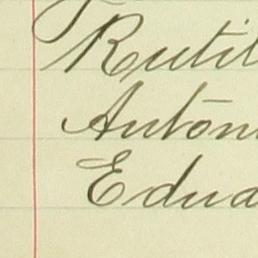 Rutil
Antōn
Edua